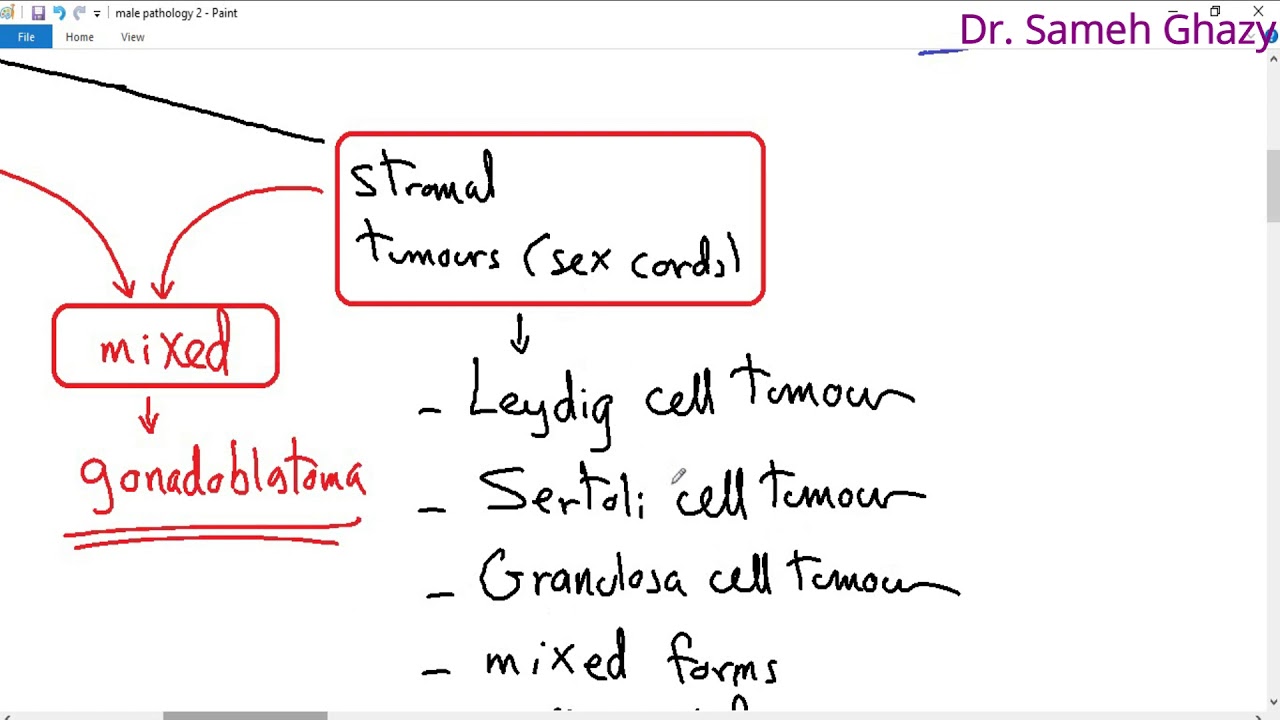 male pathology 2 - Paint
Dr. Sameh Ghazy
File Home View
stromal
tumours (sex cords)
mixed
gonadoblastoma
- Leydig cell tumour
- Sertoli cell tumour
- Granulosa cell tumour
- mixed forms